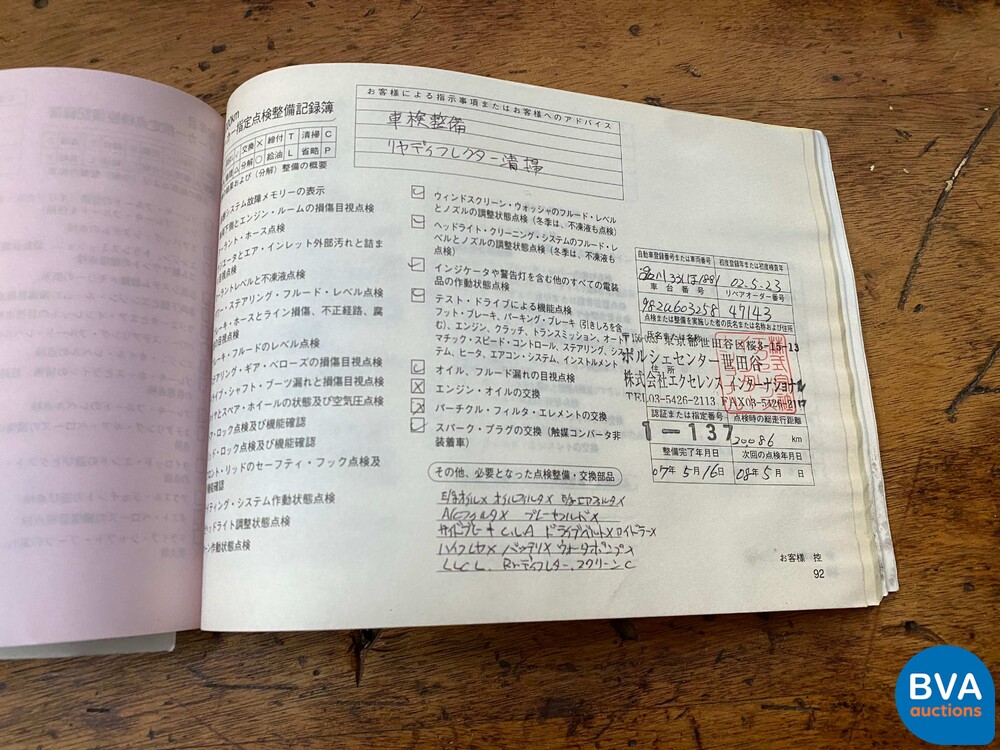 指定点検整備記録簿
交換 × 締付 T 清掃 C
分解 ○ 給油 L 省略 P
(分解)整備の概要
システム故障メモリーの表示
とエンジン・ルームの損傷目視点検
ラント・ホース点検
エータとエア・インレット外部汚れと詰ま
点検
ーラントレベルと不凍液点検
ー・ステアリング・フルード・レベル点検
ーキ・ホースとライン損傷、不正経路、腐
目視点検
ーキ・フルードのレベル点検
アリング・ギア・ベローズの損傷目視点検
イブ・シャフト・ブーツ漏れと損傷目視点検
ヤとスペア・ホイールの状態及び空気圧点検
・ロック点検及び機能確認
ド・ロック点検及び機能確認
ント・リッドのセーフティ・フック点検及
機能確認
イティング・システム作動状態点検
ッドライト調整状態点検
ーン作動状態点検
お客様による指示事項またはお客様へのアドバイス
車検整備
リヤディフレクター清掃
ウィンドスクリーン・ウォッシャのフルード・レベル
とノズルの調整状態点検(冬季は、不凍液も点検)
ヘッドライト・クリーニング・システムのフルード・レ
ベルとノズルの調整状態点検(冬季は、不凍液も
点検)
インジケータや警告灯を含む他のすべての電装
品の作動状態点検
テスト・ドライブによる機能点検
フット・ブレーキ、パーキング・ブレーキ(引きしろを含
む)、エンジン、クラッチ、トランスミッション、オート
マチック・スピード・コントロール、ステアリング、シス
テム、ヒータ、エアコン・システム、インストルメント
オイル、フルード漏れの目視点検
エンジン・オイルの交換
パーチクル・フィルタ・エレメントの交換
スパーク・プラグの交換(触媒コンバータ非
装着車)
その他、必要となった点検整備・交換部品
A/Cフィルタ×
バッテリ× ウォータポンプ×
自動車登録番号または車両番号 初度登録年または初度検査年
品川33は1881 02.5.23
車台番号 リペアオーダー番号
982U603258 47143
点検または整備を実施した者の氏名または名称および住所
氏名または名称
東京都世田谷区桜3-15-13
ポルシェセンター世田谷
住所
株式会社エクセレンス インターナショナル
TEL03-5426-2113 FAX03-5426-2117
認証または指定番号 点検時の総走行距離
1-137 20086 km
整備完了年月日 次回の点検年月日
07年5月16日 08年5月 日
お客様 控
92
BVA
auctions